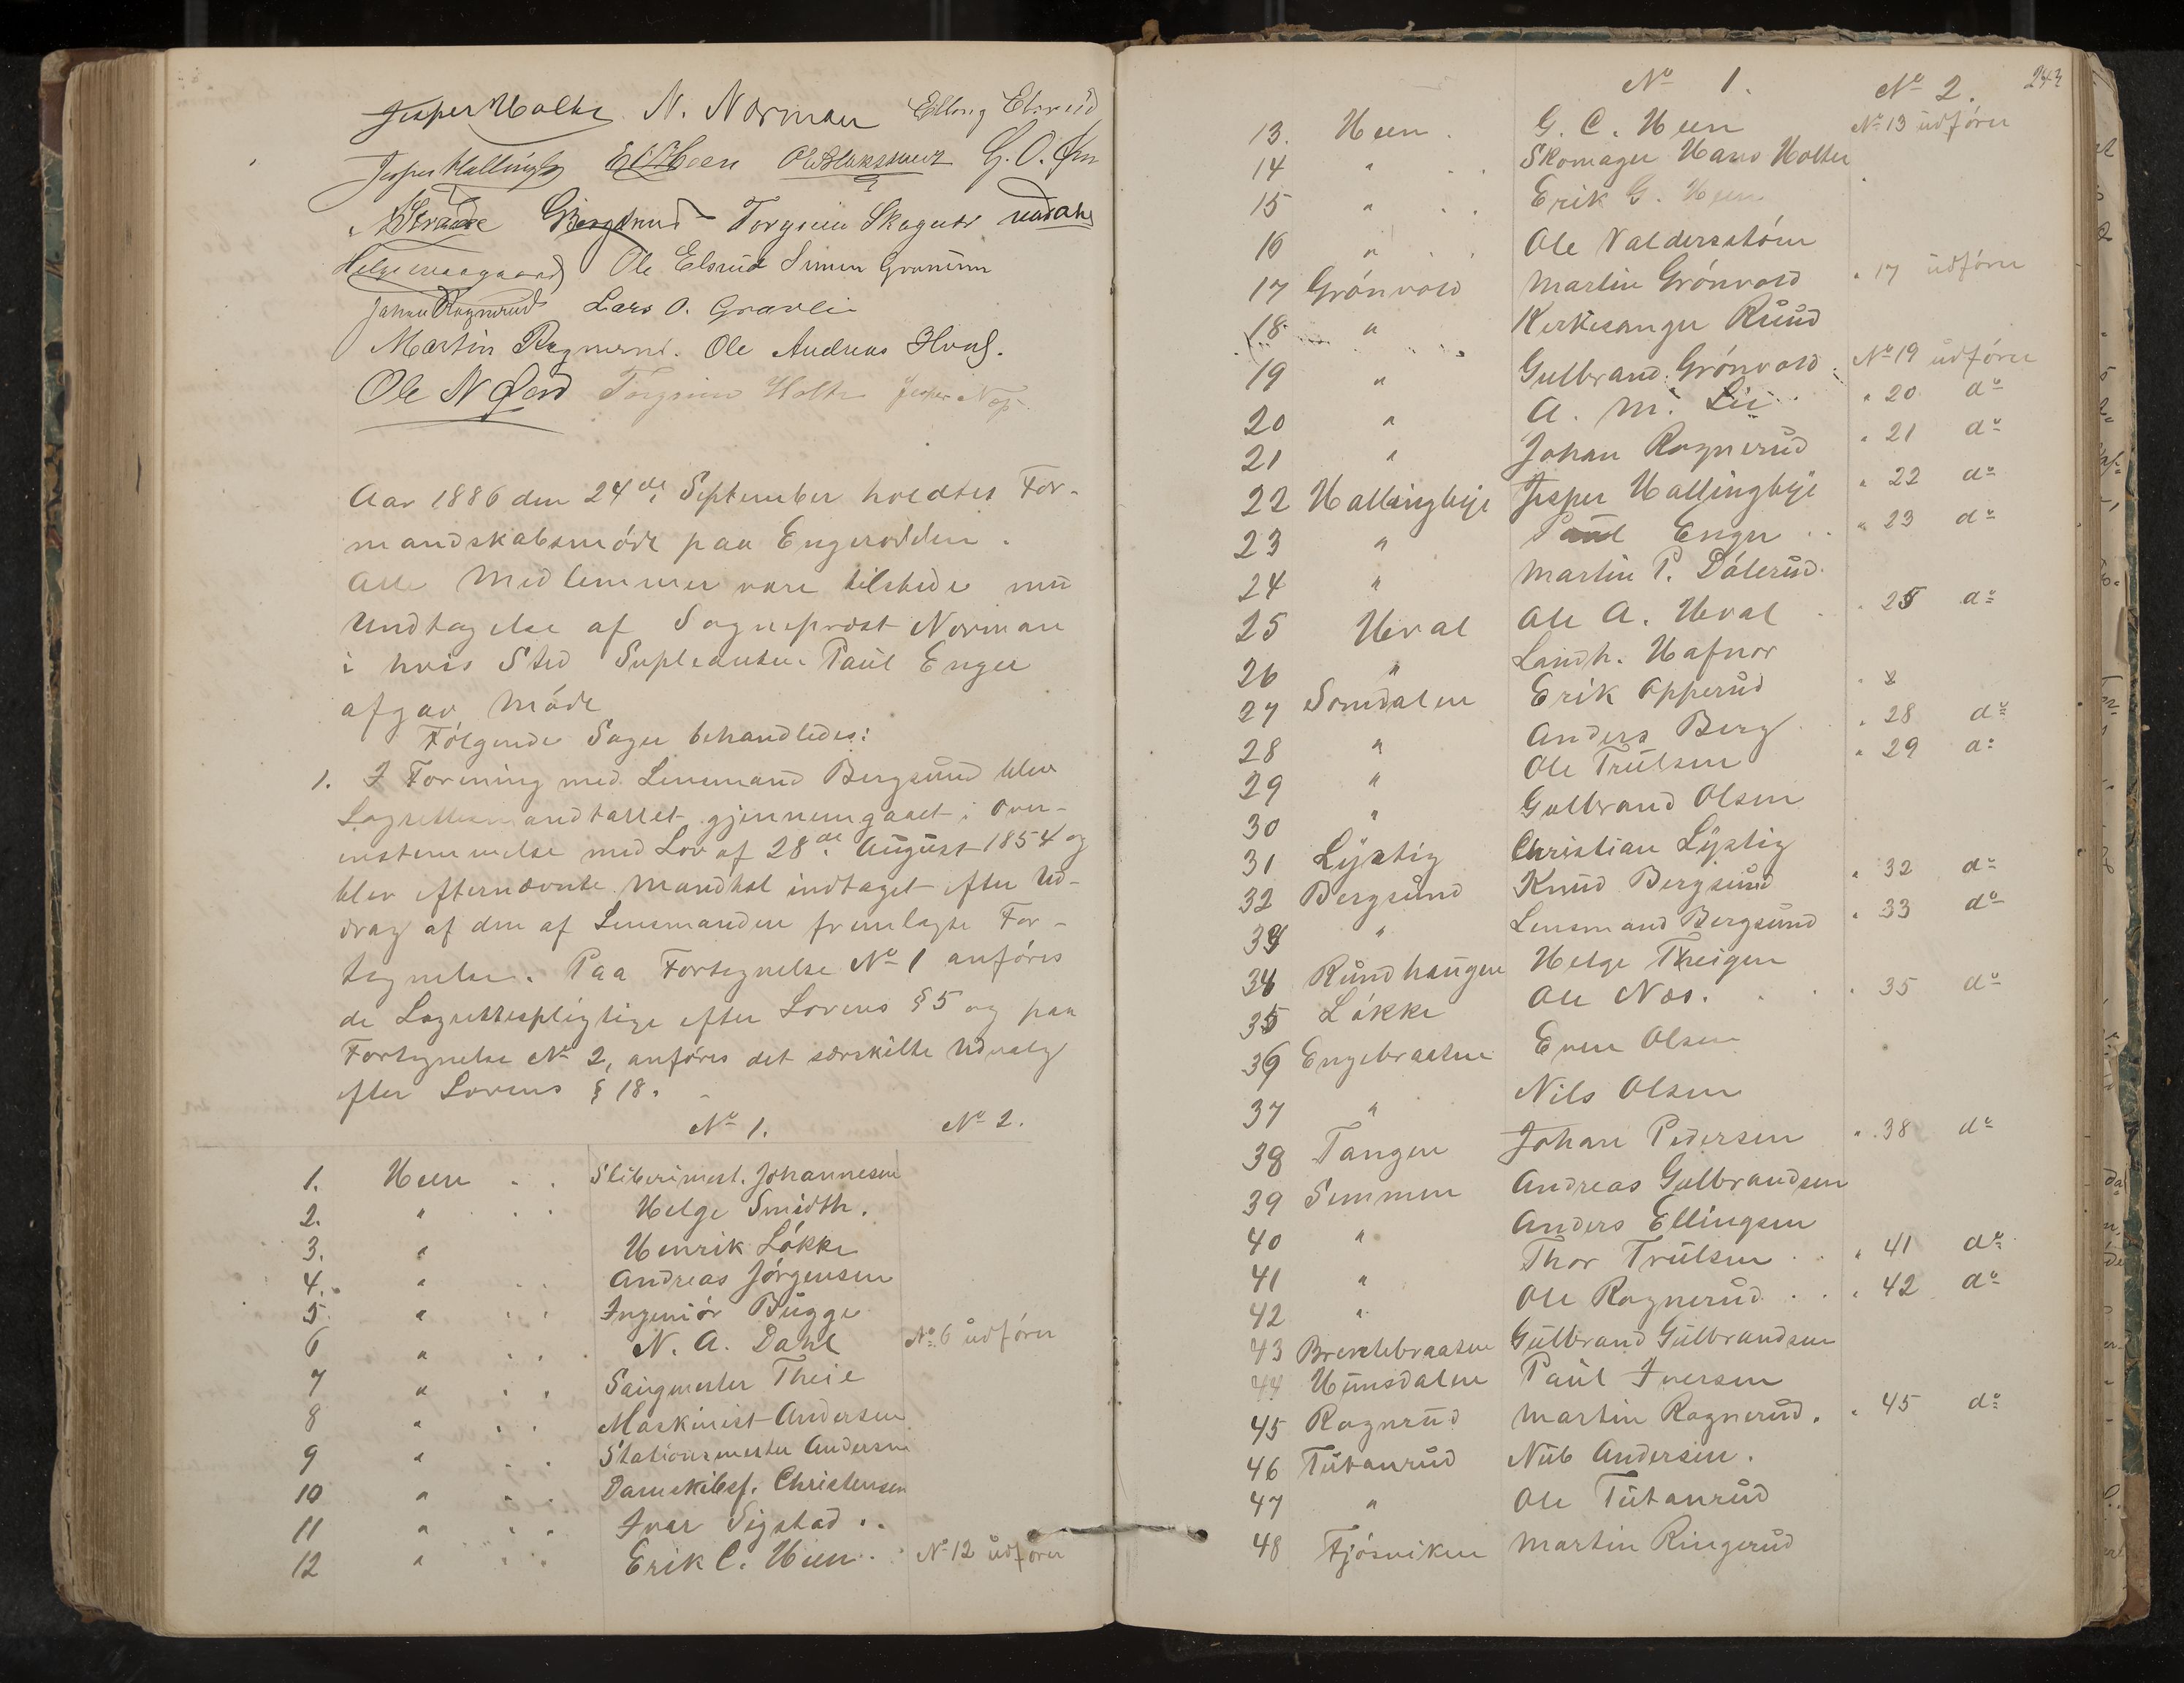 Jesper Holte N. Norman Elling Elsrud
Jesper Hallingby G. O.
Strande Torgrim
Helge Ole Elsrud Simen
Johan Rognerud Lars O. Gravlie
Martin Rognerud. Ole Andreas
Ole N Torgrim Holte Jesper
Aar 1886 den 24de September holdtes For-
mandskabsmöde paa Engerodden.
Alle Medlemmer vare tilstede mu
Undtagelse af Sogneprest Norman
i hvis Sted Supleanten Paul Enger
afgav Möde
Fölgende Sager behandledes:
1. I Forening med Lensmand Bergsund blev
Lagrettesmandtallet gjennemgaaet i Over-
enstemmelse med Lov af 28de August 1854 og
blev efternævnte Mandtal indtaget efter Ud-
drag af den af Lensmanden fremlagte For-
tegnelse. Paa Fortegnelse No 1 anföres
de Lagrettespligtige efter Lovens § 5 og paa
Fortegnelse No 2, anföres det særskilte Udvalg
efter Lovens § 18.
No 1. No 2.
1. Heen . . Sliberimest. Johannesen
2. " . . Helge Smidth.
3. " Henrik Lökke
4. " . . Andreas Jörgensen
5. " . . Ingeniör Bugge
6 " . . . N. A. Dahl No 6 udförer
7 " . . Saugmester Theie
8 " . . Maskinist Andersen
9 " . . Stationsmester Andersen
10 " . . Damskibsf. Christensen
11 " . . Iver Sigstad . .
12 " . . Erik C. Heen . No 12 udförer
243
No 1. No 2.
13. Heen . G. C. Heen No 13 udförer
14 " . . Skomager Hans Holter
15 " . . Erik G. Heen
16 " . . Ole Valdersstöen
17 Grönvold Martin Grönvold " 17 udförer
18 " Kirkesanger Ruud
19 " Gulbrand Grönvold No 19 udförer
20 " A. M. Lie " 20 do
21 " Johan Rognerud " 21 do
22 Hallingbye Jesper Hallingbye " 22 do
23 " Paul Enger . . " 23 do
24 " Martin P. Dölerud
25 Hval Ole A. Hval . " 25 do
26 " Landh. Hafnor
27 Somdalen Erik Opperud "
28 " Anders Berg " 28 do
29 " Ole Trulsen " 29 do
30 " Gulbrand Olsen
31 Lystig Christian Lystig
32 Bergsund Knud Bergsund " 32 do
33 " Lensmand Bergsund " 33 do
34 Rundhaugen Helge Theigen
35 Lökke Ole Næs. . . " 35 do
36 Engebraaten Even Olsen
37 " Nils Olsen
38 Tangen Johan Pedersen " 38 do
39 Semmen Andreas Gulbrandsen
40 " Anders Ellingsen
41 " Thor Trulsen . . " 41 do
42 " Ole Rognerud . . " 42 do
43 Brentebraaten Gulbrand Gulbrandsen
44 Hunsdalen Paul Iversen
45 Rognrud Martin Rognerud. " 45 do
46 Tutanrud Nub Andersen.
47 " Ole Tutanrud
48 Fjösviken Martin Ringerud